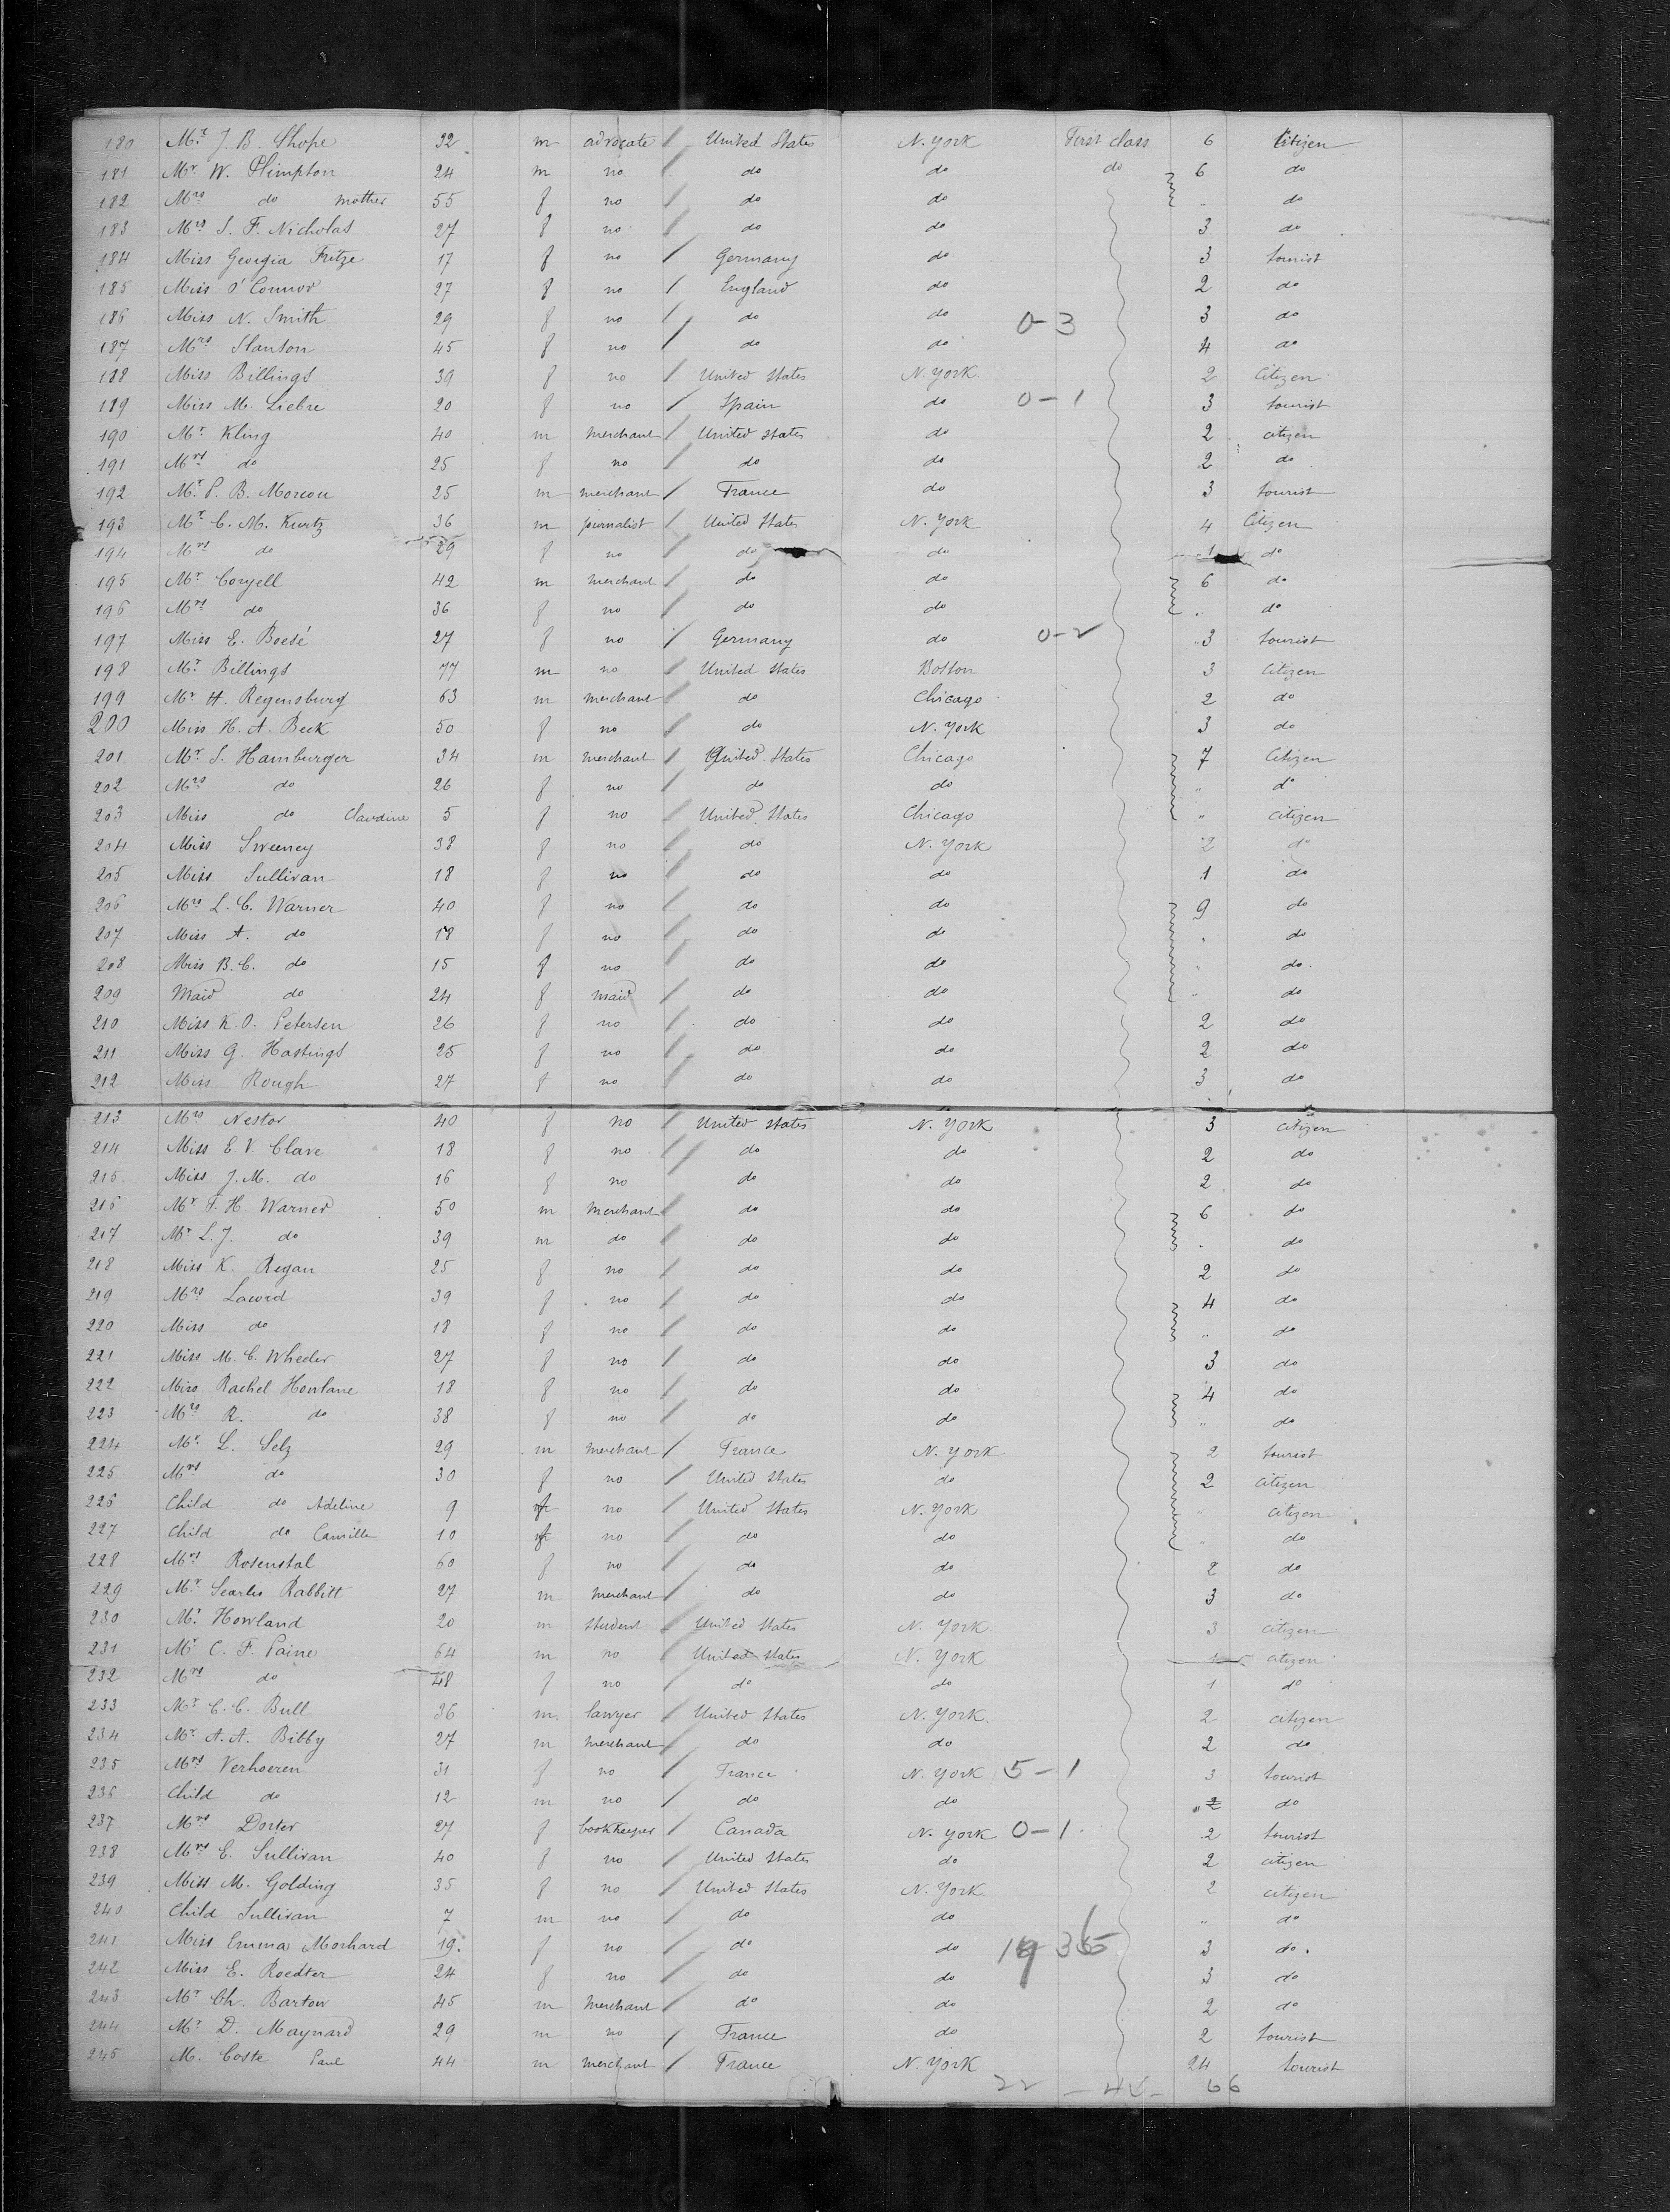 180 Mr. J. B. Shope 32 m advocate / United States N. York First class 6 Citizen
181 Mr. W. Plimpton 24 m no / do do do 6 do
182 Mrs do mother 55 f no / do do " do
183 Mrs S. F. Nicholas 27 f no / do do 3 do
184 Miss Georgia Fritze 17 f no / Germany do 3 tourist
185 Miss O'Connor 27 f no / England do 2 do
186 Miss N. Smith 29 f no / do do 0-3 3 do
187 Mrs Stanton 45 f no / do do 4 do
188 Miss Billings 39 f no / United States N. York 2 Citizen
189 Miss M. Liebre 20 f no / Spain do 0-1 3 tourist
190 Mr. Kling 40 m merchant / United States do 2 citizen
191 Mrs do 25 f no / do do 2 do
192 Mr. P. B. Morcou 25 m merchant / France do 3 tourist
193 Mr. C. M. Kurtz 36 m journalist / United States N. York 4 Citizen
194 Mrs do 29 f no / do do 1 do
195 Mr. Coryell 42 m merchant / do do 6 do
196 Mrs do 36 f no / do do " do
197 Miss E. Boesé 27 f no / Germany do 0-2 3 tourist
198 Mr. Billings 77 m no / United States Boston 3 citizen
199 Mr. H. Regensburg 63 m merchant / do Chicago 2 do
200 Miss H. A. Beck 50 f no / do N. York 3 do
201 Mr. S. Hamburger 34 m merchant / United States Chicago 7 Citizen
202 Mrs do 26 f no / do do " do
203 Miss do Claudine 5 f no / United States Chicago " citizen
204 Miss Sweeney 38 f no / do N. York 2 do
205 Miss Sullivan 18 f no / do do 1 do
206 Mrs L. C. Warner 40 f no / do do 9 do
207 Miss A. do 18 f no / do do " do
208 Miss B. C. do 15 f no / do do " do.
209 Maid do 24 f maid / do do " do
210 Miss K. O. Petersen 26 f no / do do 2 do
211 Miss G. Hastings 25 f no / do do 2 do
212 Miss Rough 27 f no / do do 3 do
213 Mrs Nestor 40 f no / United States N. York 3 citizen
214 Miss E. V. Clare 18 f no / do do 2 do
215 Miss J. M. do 16 f no / do do 2 do
216 Mr F. H. Warner 50 m merchant / do do 6 do
217 Mr L. J. do 39 m do / do do " do
218 Miss K. Regan 25 f no / do do 2 do
219 Mrs Lacord 39 f no / do do 4 do
220 Miss do 18 f no / do do " do
221 Miss M. C. Wheeler 27 f no / do do 3 do
222 Miss Rachel Howlane 18 f no / do do 4 do
223 Mrs R. do 38 f no / do do " do
224 Mr. L. Selz 29 m merchant / France N. York 2 tourist
225 Mrs do 30 f no / United States do 2 citizen
226 Child do Adeline 9 f no / United States N. York " citizen
227 Child do Camille 10 f no / do do " do
228 Mrs Rosenstal 60 f no / do do 2 do
229 Mr. Searles Rabbitt 27 m merchant / do do 3 do
230 Mr. Howland 20 m student / United States N. York 3 citizen
231 Mr C. F. Paine 64 m no / United States N. York 1 citizen
232 Mrs do 48 f no / do do 1 do
233 Mr. C. C. Bull 36 m. lawyer / United States N. York. 2 citizen
234 Mr. A. A. Bibby 27 m merchant / do do 2 do
235 Mrs Verhoeren 31 f no / France N. York 5-1 3 tourist
236 Child do 12 m no / do do " 2 do
237 Mrs Dorter 27 f bookkeeper / Canada N. York 0-1 2 tourist
238 Mrs E. Sullivan 40 f no / United States do 2 citizen
239 Miss M. Golding 35 f no / United States N. York 2 citizen
240 Child Sullivan 7 m no / do do " do
241 Miss Emma Morhard 19. f no / do do 3 do.
242 Miss E. Roedter 24 f no / do do 3 do
243 Mr. Ch. Barton 45 m merchant / do do 2 do
244 Mr. D. Maynard 29 m no / France do 2 tourist
245 M. Coste Paul 44 m merchant / France N. York 24 tourist
22 66